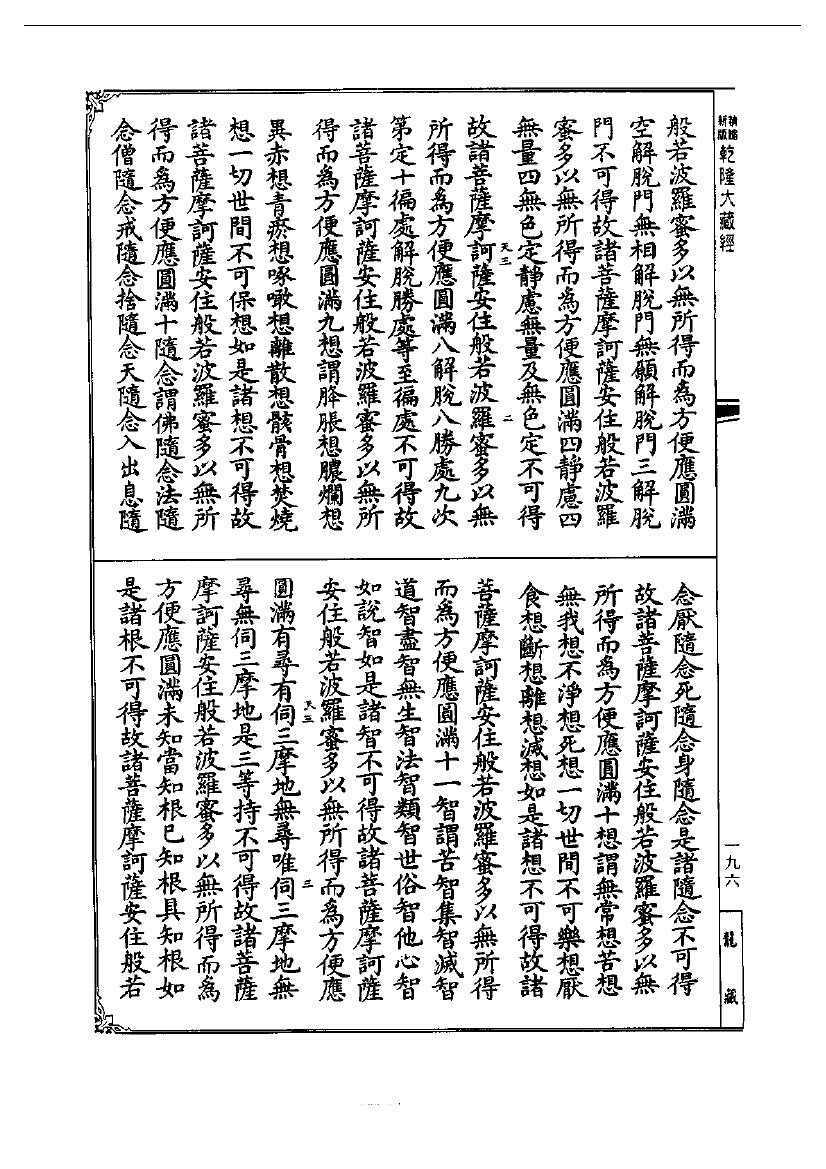 般若波羅蜜多以無所得而為方便應圓滿
空解脫門無相解脫門無願解脫門三解脫
門不可得故諸菩薩摩訶薩安住般若波羅
蜜多以無所得而為方便應圓滿四靜慮四
無量四無色定靜慮無量及無色定不可得
故諸菩薩摩訶薩安住般若波羅蜜多以無
天三 二
所得而為方便應圓滿八解脫八勝處九次
第定十徧處解脫勝處等至徧處不可得故
諸菩薩摩訶薩安住般若波羅蜜多以無所
得而為方便應圓滿九想謂胮脹想膿爛想
異赤想青瘀想啄噉想離散想骸骨想焚燒
想一切世間不可保想如是諸想不可得故
諸菩薩摩訶薩安住般若波羅蜜多以無所
得而為方便應圓滿十隨念謂佛隨念法隨
念僧隨念戒隨念捨隨念天隨念入出息隨
念厭隨念死隨念身隨念是諸隨念不可得
故諸菩薩摩訶薩安住般若波羅蜜多以無
所得而為方便應圓滿十想謂無常想苦想
無我想不淨想死想一切世間不可樂想厭
食想斷想離想滅想如是諸想不可得故諸
菩薩摩訶薩安住般若波羅蜜多以無所得
而為方便應圓滿十一智謂苦智集智滅智
道智盡智無生智法智類智世俗智他心智
如說智如是諸智不可得故諸菩薩摩訶薩
安住般若波羅蜜多以無所得而為方便應
天三 三
圓滿有尋有伺三摩地無尋唯伺三摩地無
尋無伺三摩地是三等持不可得故諸菩薩
摩訶薩安住般若波羅蜜多以無所得而為
方便應圓滿未知當知根已知根具知根如
是諸根不可得故諸菩薩摩訶薩安住般若
新版 乾隆大藏經
一九六
龍藏